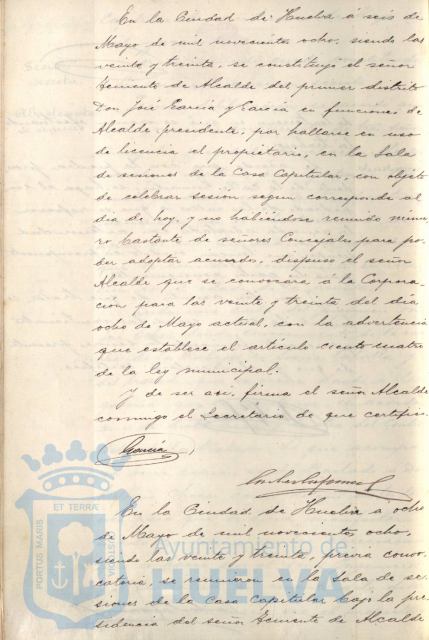 En la Ciudad de Huelva á seis de
Mayo de mil novecientos ocho, siendo las
veinte y treinta, se constituyó el señor
Teniente de Alcalde del primer distrito
Don José García y García en funciones de
Alcalde presidente, por hallarse en uso
de licencia el propietario, en la Sala
de sesiones de la Casa Capitular, con objeto
de celebrar sesión segun corresponde al
dia de hoy, y no habiéndose reunido núme-
ro bastante de señores Concejales para po-
der adoptar acuerdo, dispuso el señor
Alcalde que se convocara á la Corpora-
ción para las veinte y treinta del día
ocho de Mayo actual, con la advertencia
que establece el artículo ciento cuatro
de la ley municipal.
Y de ser asi, firma el señor Alcalde
conmigo el Secretario de que certifico.
García
En la Ciudad de Huelva á ocho
de Mayo de mil novecientos ocho,
siendo las veinte y treinta, previa convo-
catoria, se reunieron en la Sala de se-
siones de la Casa Capitular bajo la pre-
sidencia del señor Teniente de Alcalde
PORTUS MARIS ET TERRAE
Ayuntamiento de
HUELVA